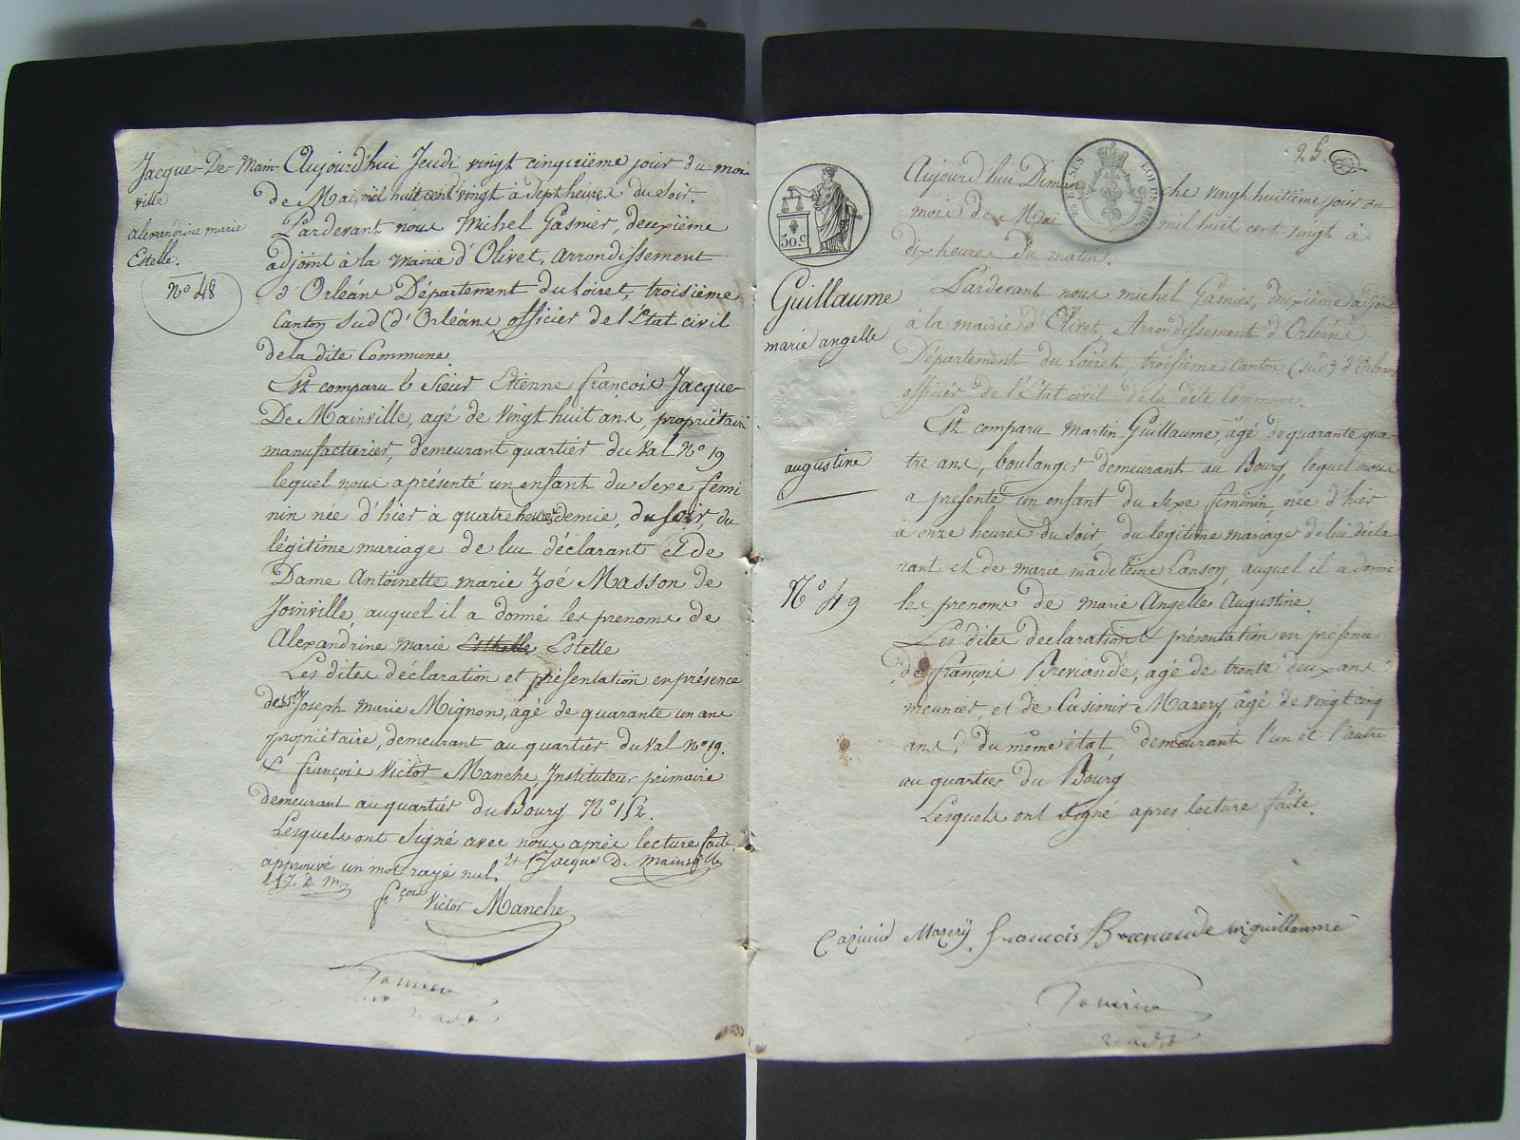 Jacque De Main-
ville
alexandrine marie
Estelle.
N° 48
Aujourd'hui Jeudi vingt cinquième jour du moi
de Mai, mil huit cent vingt à sept heures du soir.
Pardevant nous Michel Gasnier, deuxième
adjoint à la mairie d'Olivet, arrondissement
d'Orléans Département du Loiret, troisième
Canton Sud d'Orléans officier de l'Etat civil
de la dite Commune
Est comparu le Sieur Etienne françois Jacque
De Mainville, agé de vingt huit ans, propriétaire
manufacturier, demeurant quartier du Val N° 19
lequel nous a présenté un enfant du sexe fémi
nin née d'hier à quatre heures demie, du soir, du
légitime mariage de lui déclarant et de
Dame Antoinette marie Zoé Masson de
Joinville, auquel il a donné les prenoms de
Alexandrine marie Esthelle Estelle
Les dites déclaration et présentation en présence
des Sr Joseph Marie Mignon, agé de quarante un ans
propriétaire, demeurant au quartier du Val N° 19.
& françois Victor Manche, Instituteur primaire
demeurant au quartier du Bourg N° 152.
Lesquels ont signé avec nous après lecture faite
approuvé un mot rayé nul. Jacque De mainville
fçois Victor Manche
25
LOUIS
30.c
Guillaume
marie angelle
augustine
N° 49
Aujourd'hui Dimanche vingt huitième jour du
mois de Mai mil huit cent vingt à
dix heures du matin.
Pardevant nous michel Gasnier, deuxième adjoint
à la mairie d'Olivet, Arrondissement d'Orléans
Département du Loiret, troisième canton (sud) d'Orléans
officier de l'Etat civil de la dite Commune.
Est comparu Martin Guillaume, agé de quarante qua-
tre ans, boulanger demeurant au Bourg, lequel nous
a présenté un enfant du sexe féminin née d'hier
à onze heures du soir du legitime mariage de lui décla
rant et de marie madeleine Lanson, auquel il a donné
les prenoms de marie Angelle Augustine.
Les dites declaration & présentation en présence
de françois, agé de trente deux ans
meunier, et de Casimir Mazery, agé de vingt cinq
ans, du même état, demeurant l'un et l'autre
au quartier du Bourg
Lesquels ont signé apres lecture faite.
Cazimir Mazery françois m guillaume